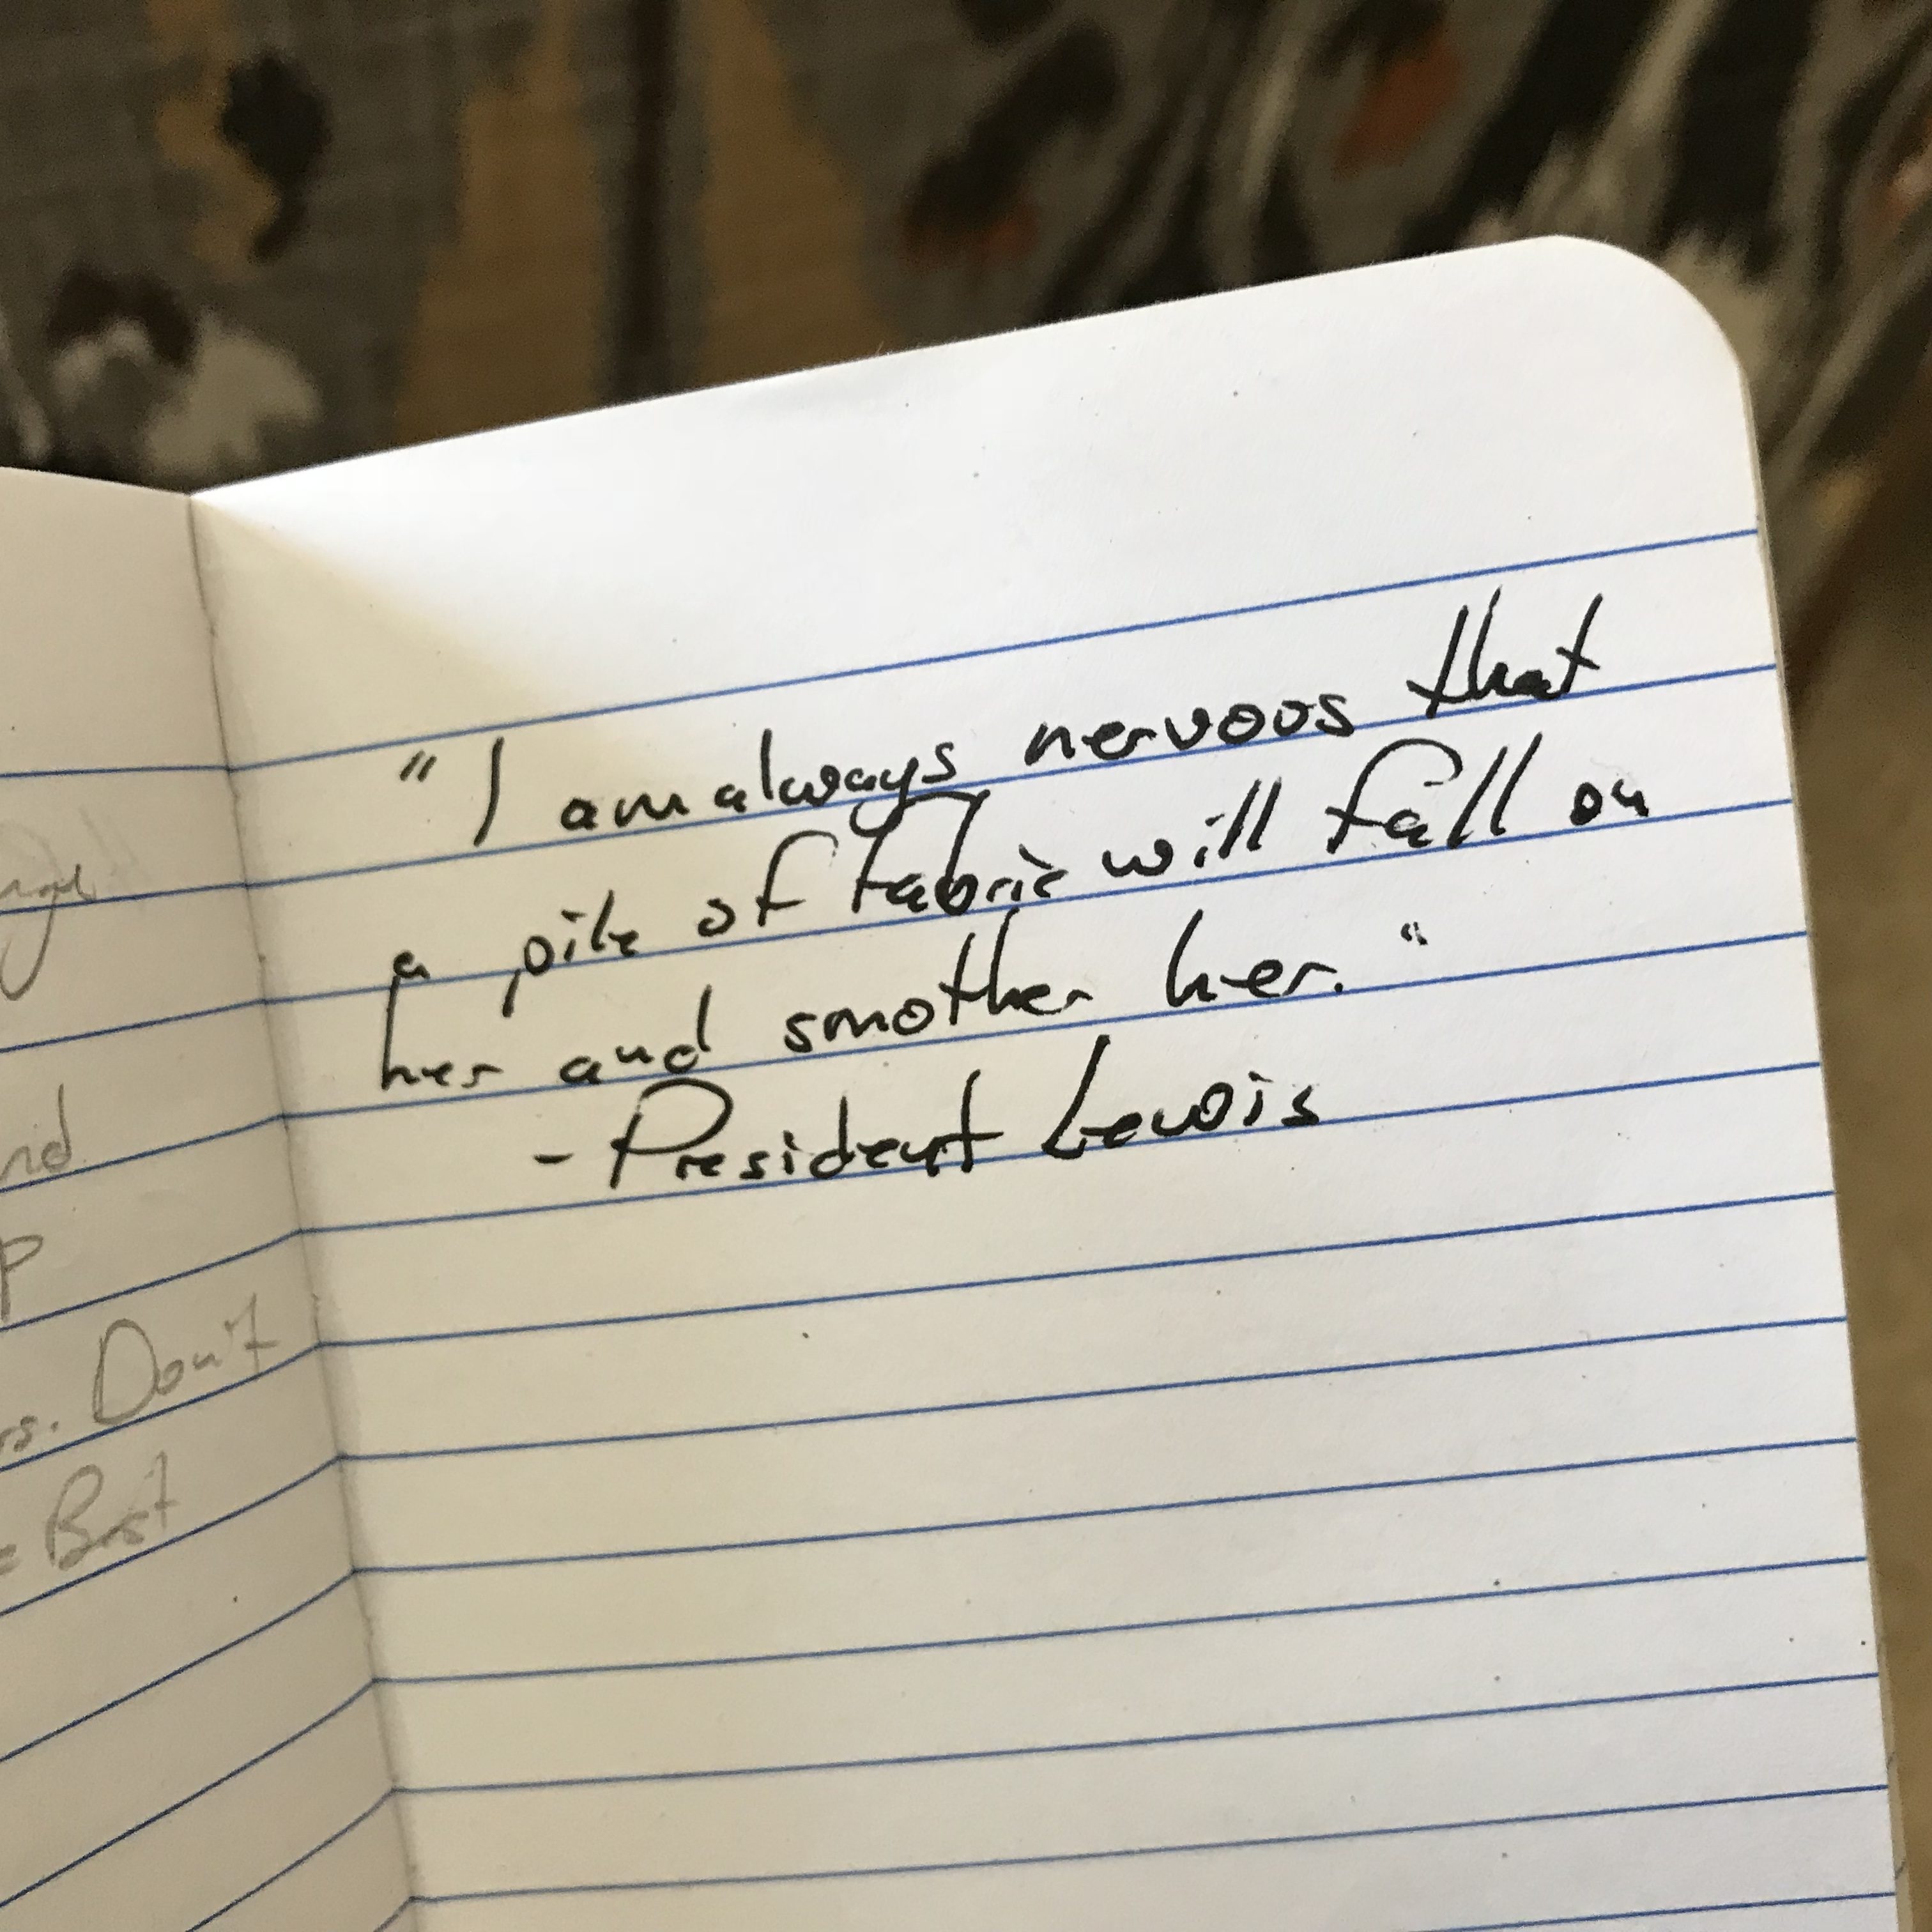 "I am always nervous that
a pile of fabric will fall on
her and smother her."
- President Lewis
nd
P
rs. Don't
= Best